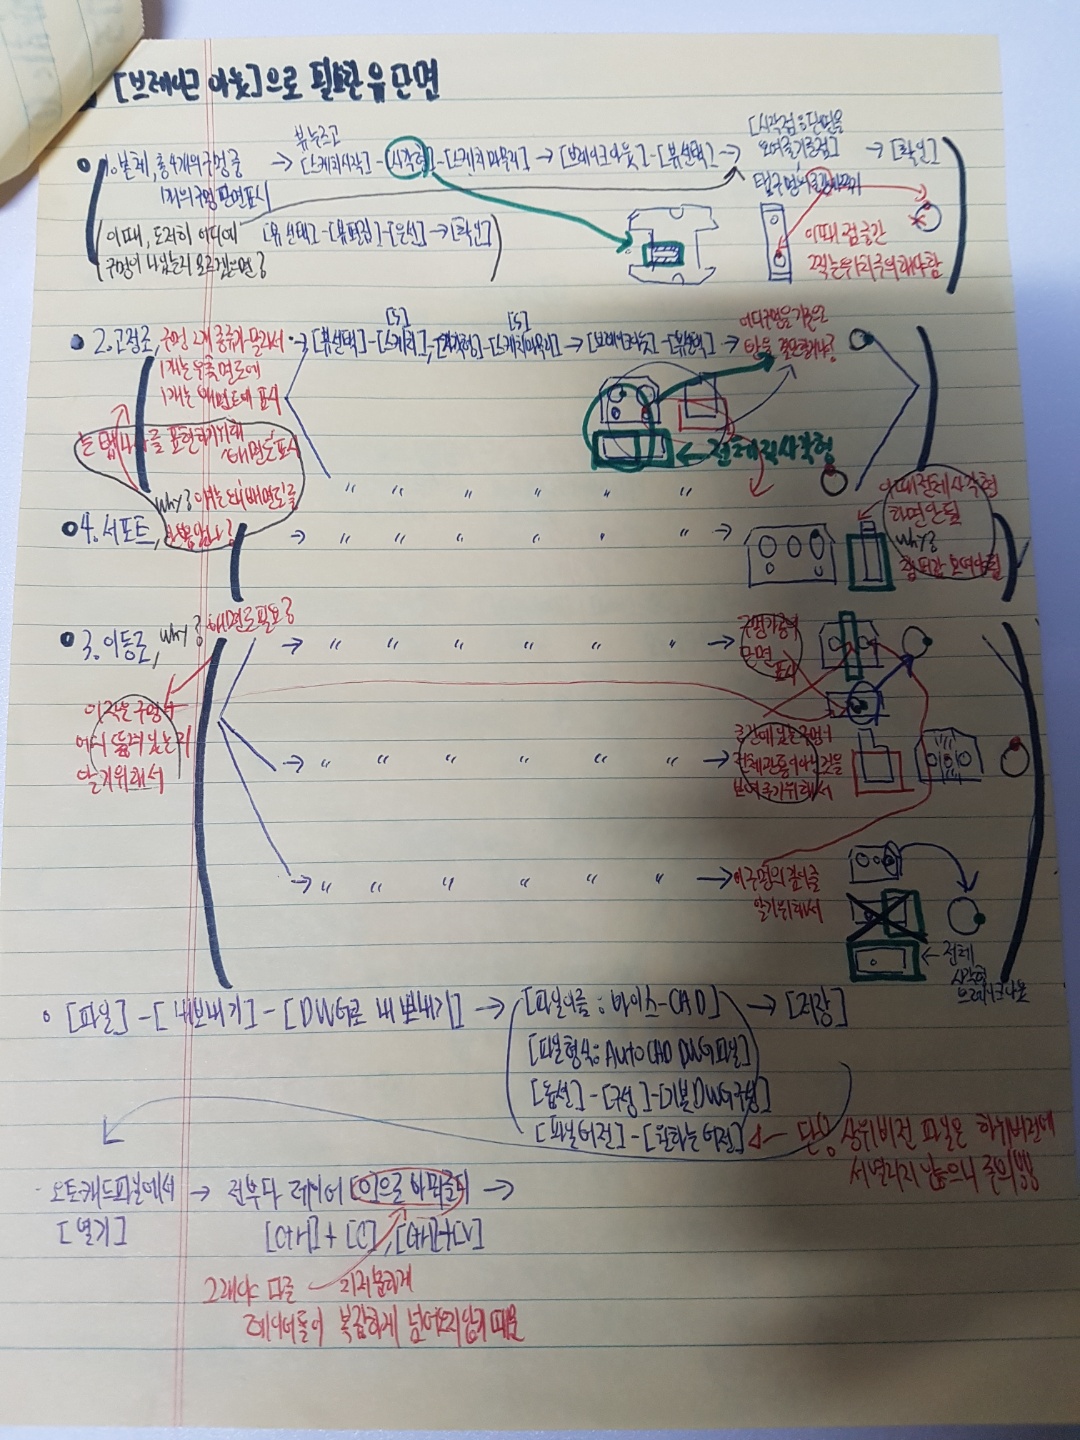 [브레이크 아웃]으로 필요한 뷰 단면
1. 본체, 총 4개의 구멍 중
1개의 구멍 단면표시
뷰 눌르고
→ [스케치시작]-[사각형]-[스케치마무리]→[브레이크아웃]-[뷰선택]→
[시작점:단면을
보여줄기준점]
→ [확인]
이때, 도저히 어디에
구멍이 나있는지 모르겠으면?
[뷰선택]-[뷰편집]-[은선]→[확인]
이때 점 중간
찍는 위치 주의해야함
2. 고정조, 구멍 2개 종류가 달라서
1개는 우측면도에
1개는 배면도에 표시
→ [뷰선택]-[스케치],[사각형]-[스케치마무리]→[브레이크아웃]-[뷰선택]→
[S]
[S]
← 전체 직사각형
표현하기위해
배면도표시
Why? 이유는 왜 배면도를
〃 〃 〃 〃 〃 〃
이때 전체 사각형
하면 안됨
why?
4. 서포트,
→ 〃 〃 〃 〃 〃 〃 →
3. 이동조, why? 배면도 필요?
→ 〃 〃 〃 〃 〃 〃 →
구멍가공의
단면
표시
이 작은 구멍이
어디 뚫려있는지
알기위해서
→ 〃 〃 〃 〃 〃 〃 →
중간에 있는 구멍이
전체관통이라는 것을
보여주기위해서
→ 〃 〃 〃 〃 〃 〃 →
이 구멍의 깊이를
알기위해서
← 전체
사각형
브레이크아웃
[파일]-[내보내기]-[DWG로 내보내기] → [파일이름: 바이스-CAD] → [저장]
[파일형식: AutoCAD DWG파일]
[옵션]-[구성]-[기본DWG구성]
[파일버전]-[원하는버전] ← 단, 상위버전 파일은 하위버전에
서 열리지 않으니 주의요망
오토캐드파일에서 → 전부다 레이어 [0]으로 바꿔준뒤 →
[열기]
[Ctrl]+[C], [Ctrl]+[V]
그래야 다른
지저분하게
레이어들이 복잡하게 넘어오지않기 때문